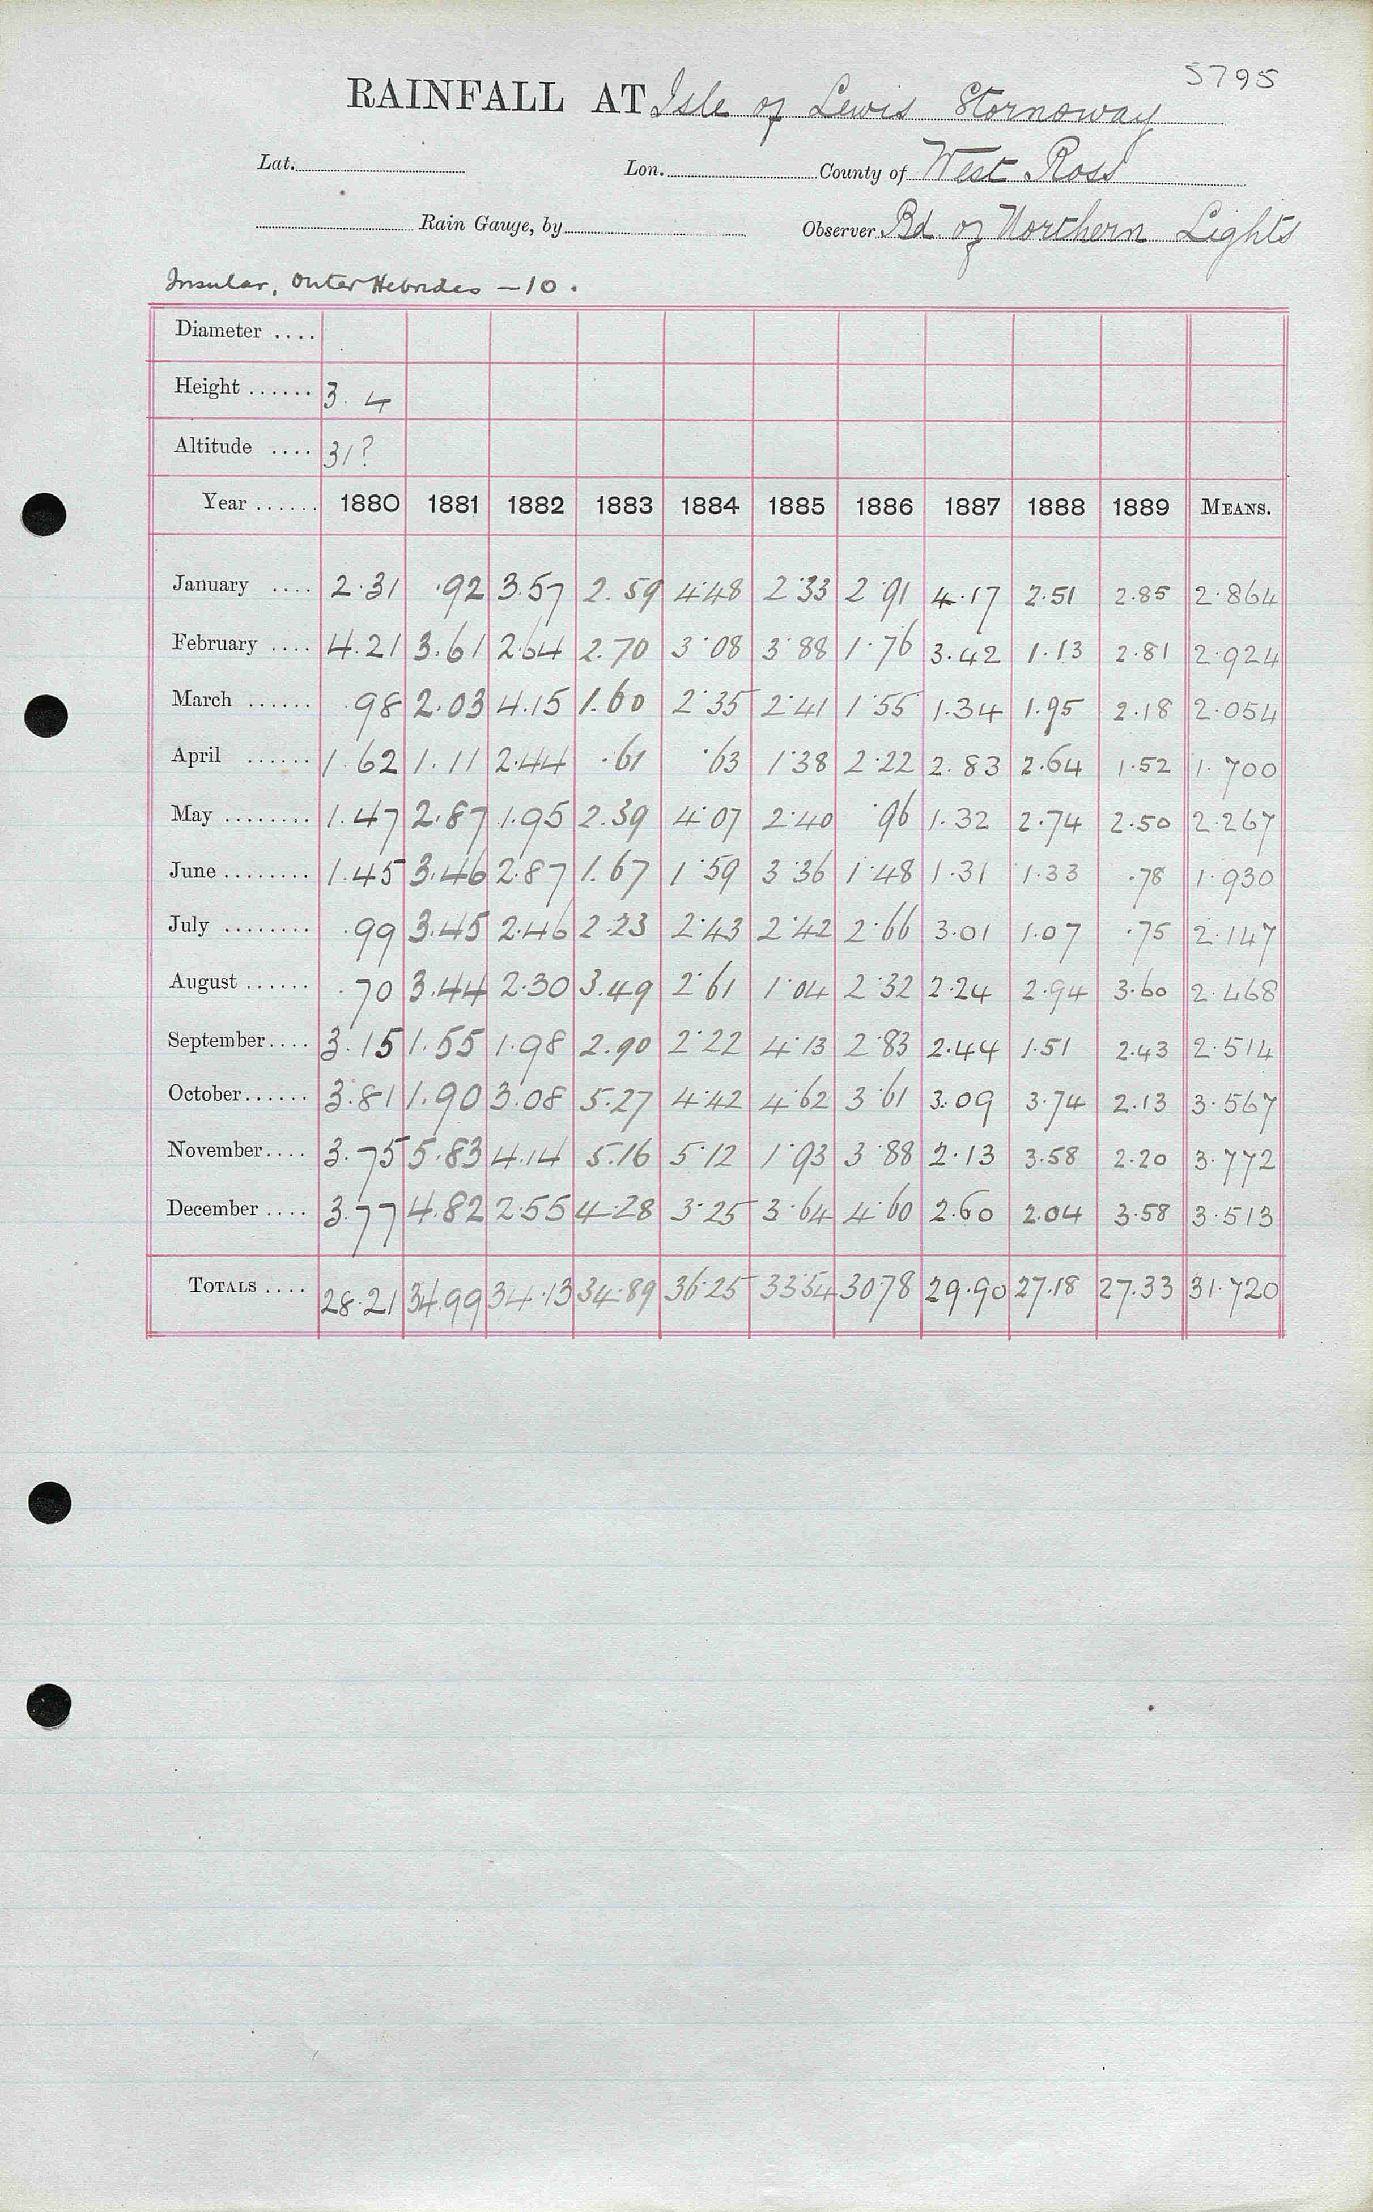 5795
RAINFALL AT Isle of Lewis Stornoway
Lat. Lon. County of West Ross
Rain Gauge, by Observer Bd. of Northern Lights
Insular, Outer Hebrides — 10.
Diameter ....
Height ...... 3. 4
Altitude .... 31?
Year ...... 1880 1881 1882 1883 1884 1885 1886 1887 1888 1889 MEANS.
January .... 2.31 .92 3.57 2.59 4.48 2.33 2.91 4.17 2.51 2.85 2.864
February .... 4.21 3.61 2.64 2.70 3.08 3.88 1.76 3.42 1.13 2.81 2.924
March ...... .98 2.03 4.15 1.60 2.35 2.41 1.55 1.34 1.95 2.18 2.054
April ...... 1.62 1.11 2.44 .61 .63 1.38 2.22 2.83 2.64 1.52 1.700
May ........ 1.47 2.87 1.95 2.39 4.07 2.40 .96 1.32 2.74 2.50 2.267
June ........ 1.45 3.46 2.87 1.67 1.59 3.36 1.48 1.31 1.33 .78 1.930
July ........ .99 3.45 2.46 2.23 2.43 2.42 2.66 3.01 1.07 .75 2.147
August ...... .70 3.44 2.30 3.49 2.61 1.04 2.32 2.24 2.94 3.60 2.468
September.... 3.15 1.55 1.98 2.90 2.22 4.13 2.83 2.44 1.51 2.43 2.514
October...... 3.81 1.90 3.08 5.27 4.42 4.62 3.61 3.09 3.74 2.13 3.567
November.... 3.75 5.83 4.14 5.16 5.12 1.93 3.88 2.13 3.58 2.20 3.772
December .... 3.77 4.82 2.55 4.28 3.25 3.64 4.60 2.60 2.04 3.58 3.513
TOTALS .... 28.21 34.99 34.13 34.89 36.25 33.54 30.78 29.90 27.18 27.33 31.720